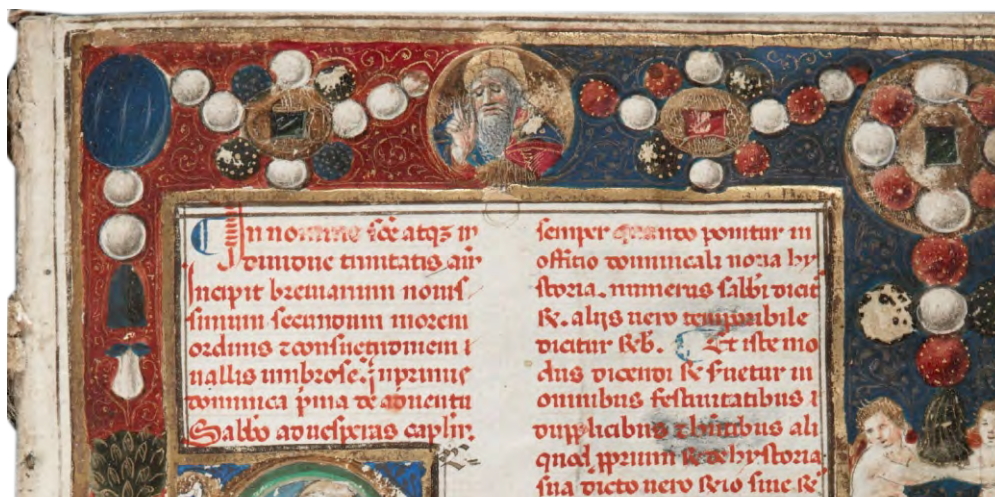 In nomine sc̄e atqȝ in
diuidue trinitatis am̄
Incipit breuiarium nouis
simum secundum morem
ordinis ⁊ consuetudinem
uallis umbrose. in primis
dominica p̄ma de aduentu
Sabb̄o ad uesperas capl̄m.
semper quando ponitur in
officio dominicali noua hy
storia. numerus sabb̄i dicit
℞. alijs uero temporibus
dicitur ℞b̄. Et iste mo
dus dicendi ℞ suetur in
omnibus festiuitatibus
dupplicibus ali
quod pprium ℞ de hystoria
sua dicto uero ℞io siue ℞